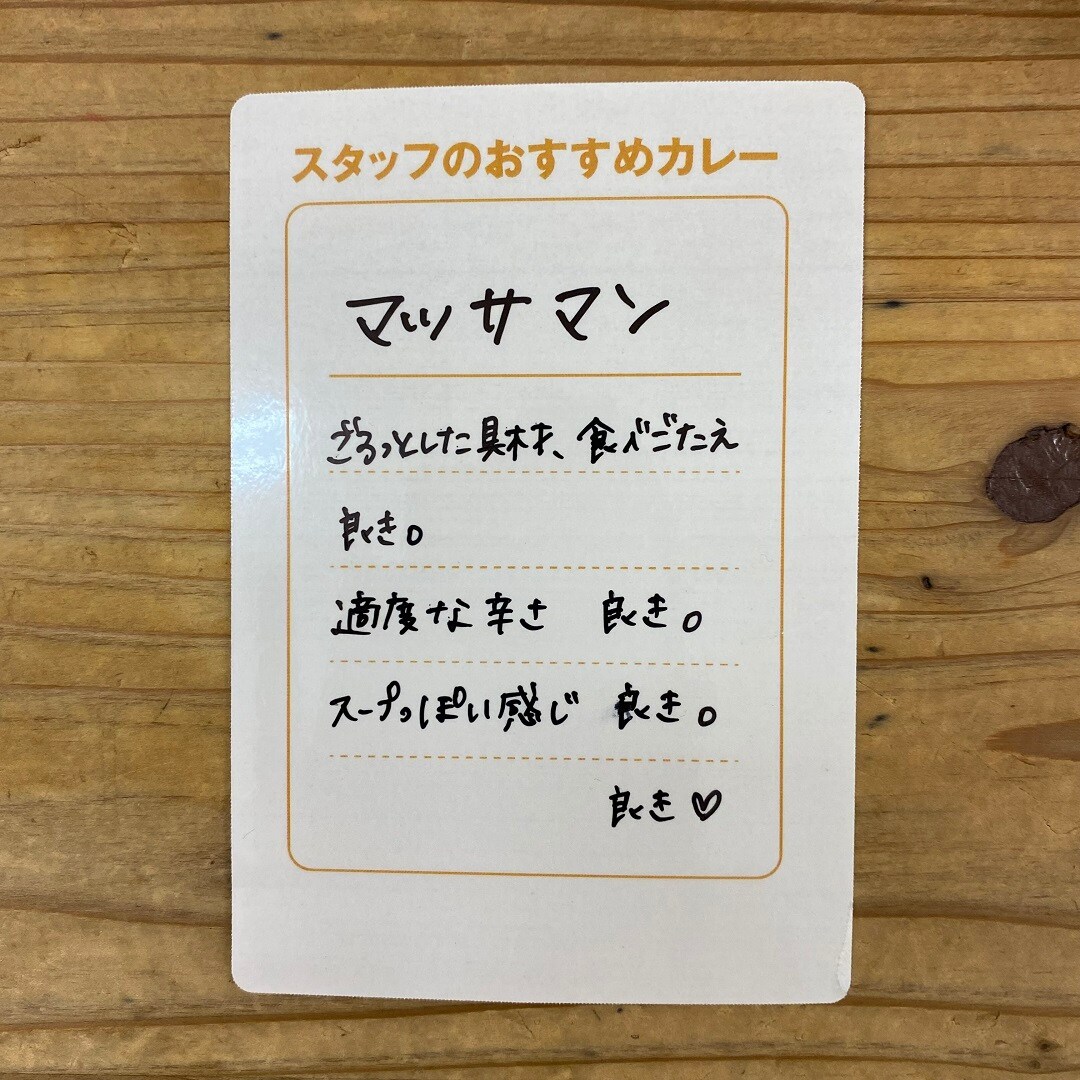 スタッフのおすすめカレー
マッサマン
ごろっとした具材、食べごたえ
良き。
適度な辛さ 良き。
スープっぽい感じ 良き。
良き♡